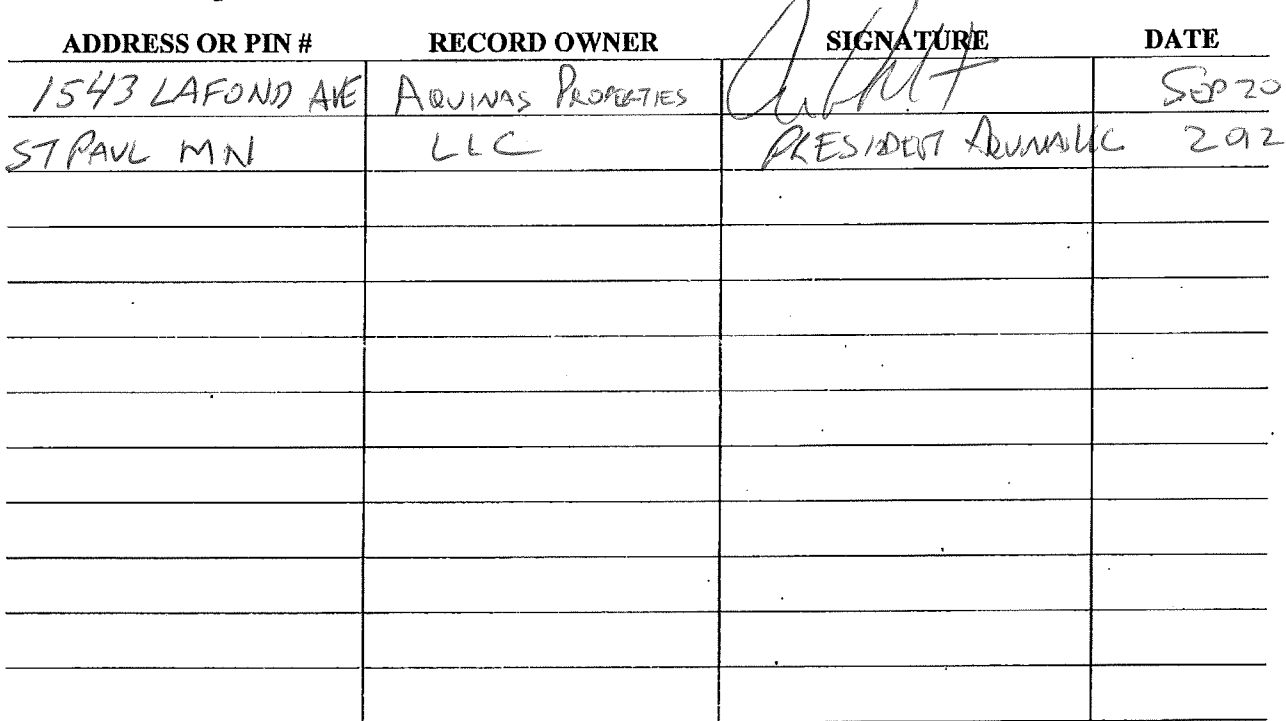 ADDRESS OR PIN # RECORD OWNER SIGNATURE DATE
1543 LAFOND AVE AQUINAS PROPERTIES SEP 20
ST PAUL MN LLC PRESIDENT 2012